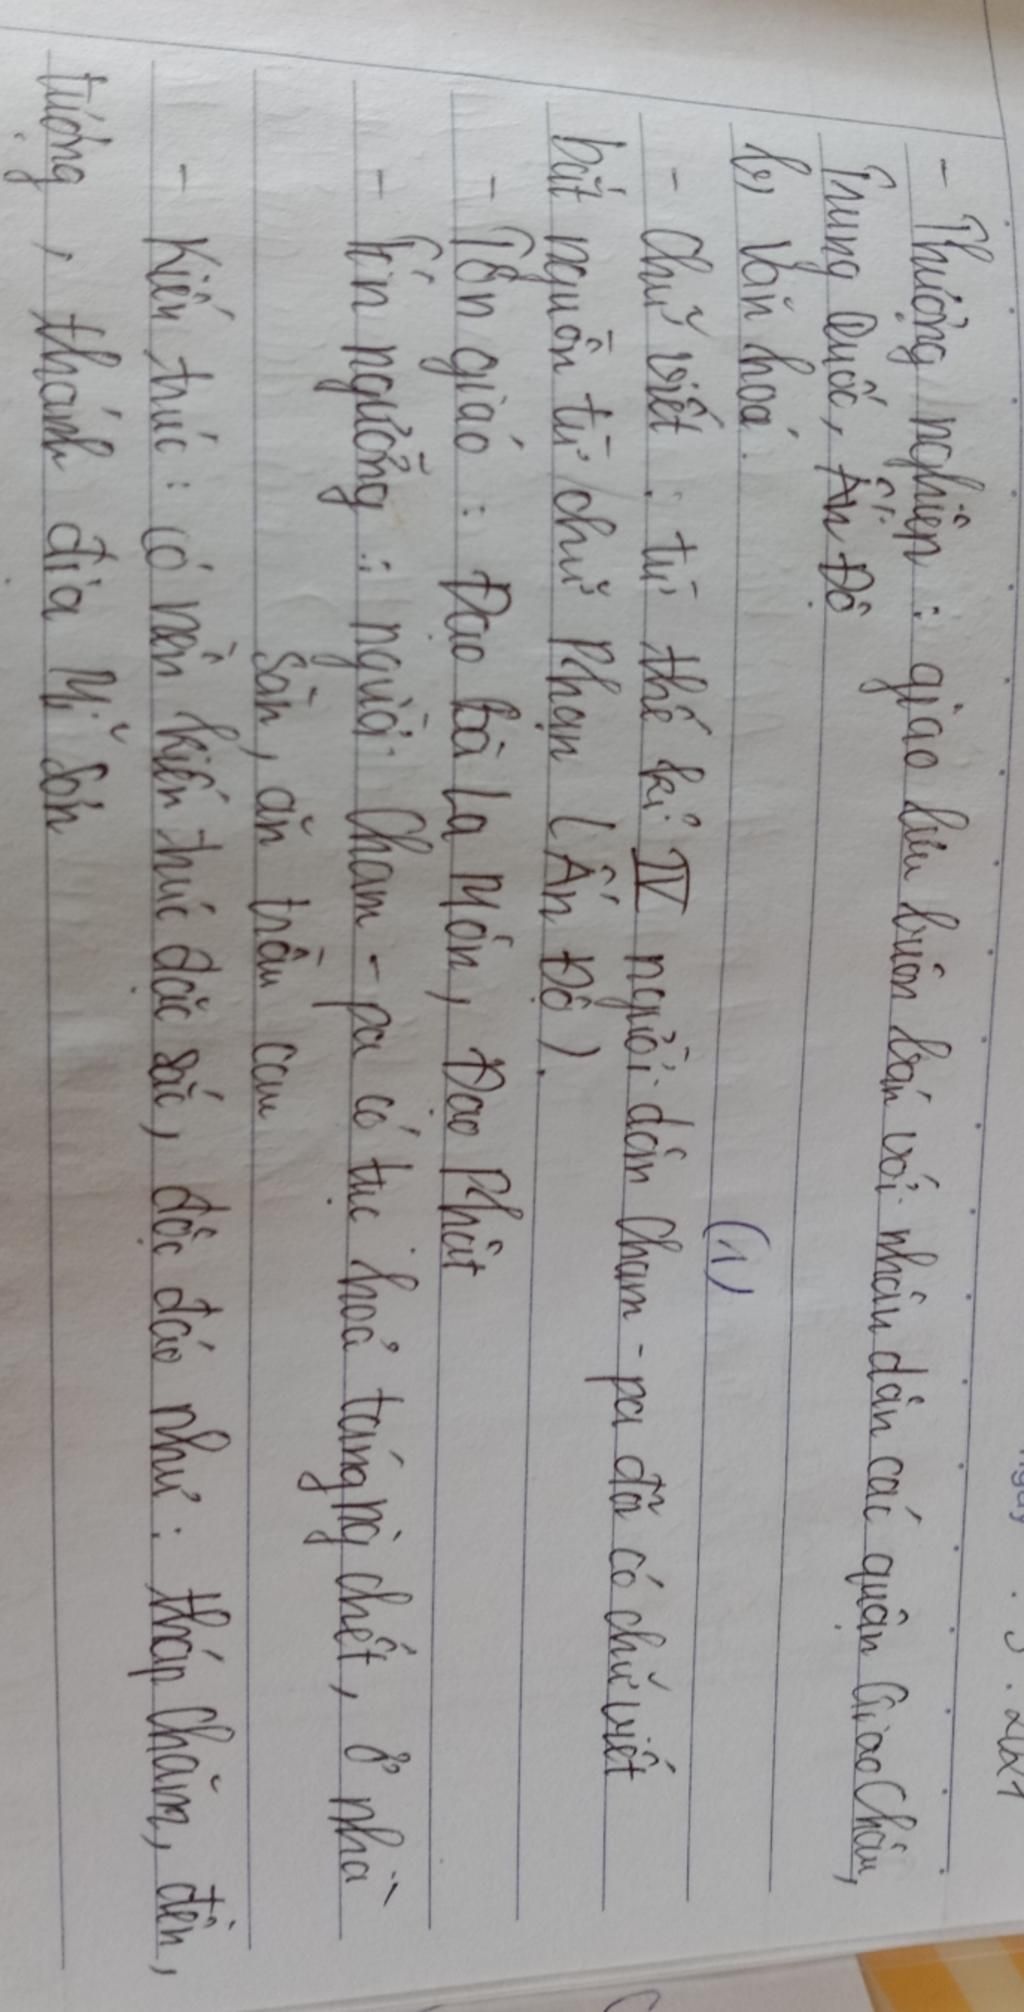 - Thương nghiệp : giao lưu buôn bán với nhân dân các quận Giao Châu,
Trung Quốc, Ấn Độ
b, Văn hoá. (1)
- Chữ viết : từ thế kỉ IV người dân Cham-pa đã có chữ viết
bắt nguồn từ chữ Phạn (Ấn Độ).
- Tôn giáo : Đạo Bà La Môn, Đạo Phật
- Tín ngưỡng : người Cham-pa có tục hoả táng ng chết, ở nhà
sàn, ăn trầu cau
- Kiến trúc : có nền kiến thúc đặc sắc, độc đáo như : tháp Chăm, đền,
tượng, thánh địa Mĩ Sơn